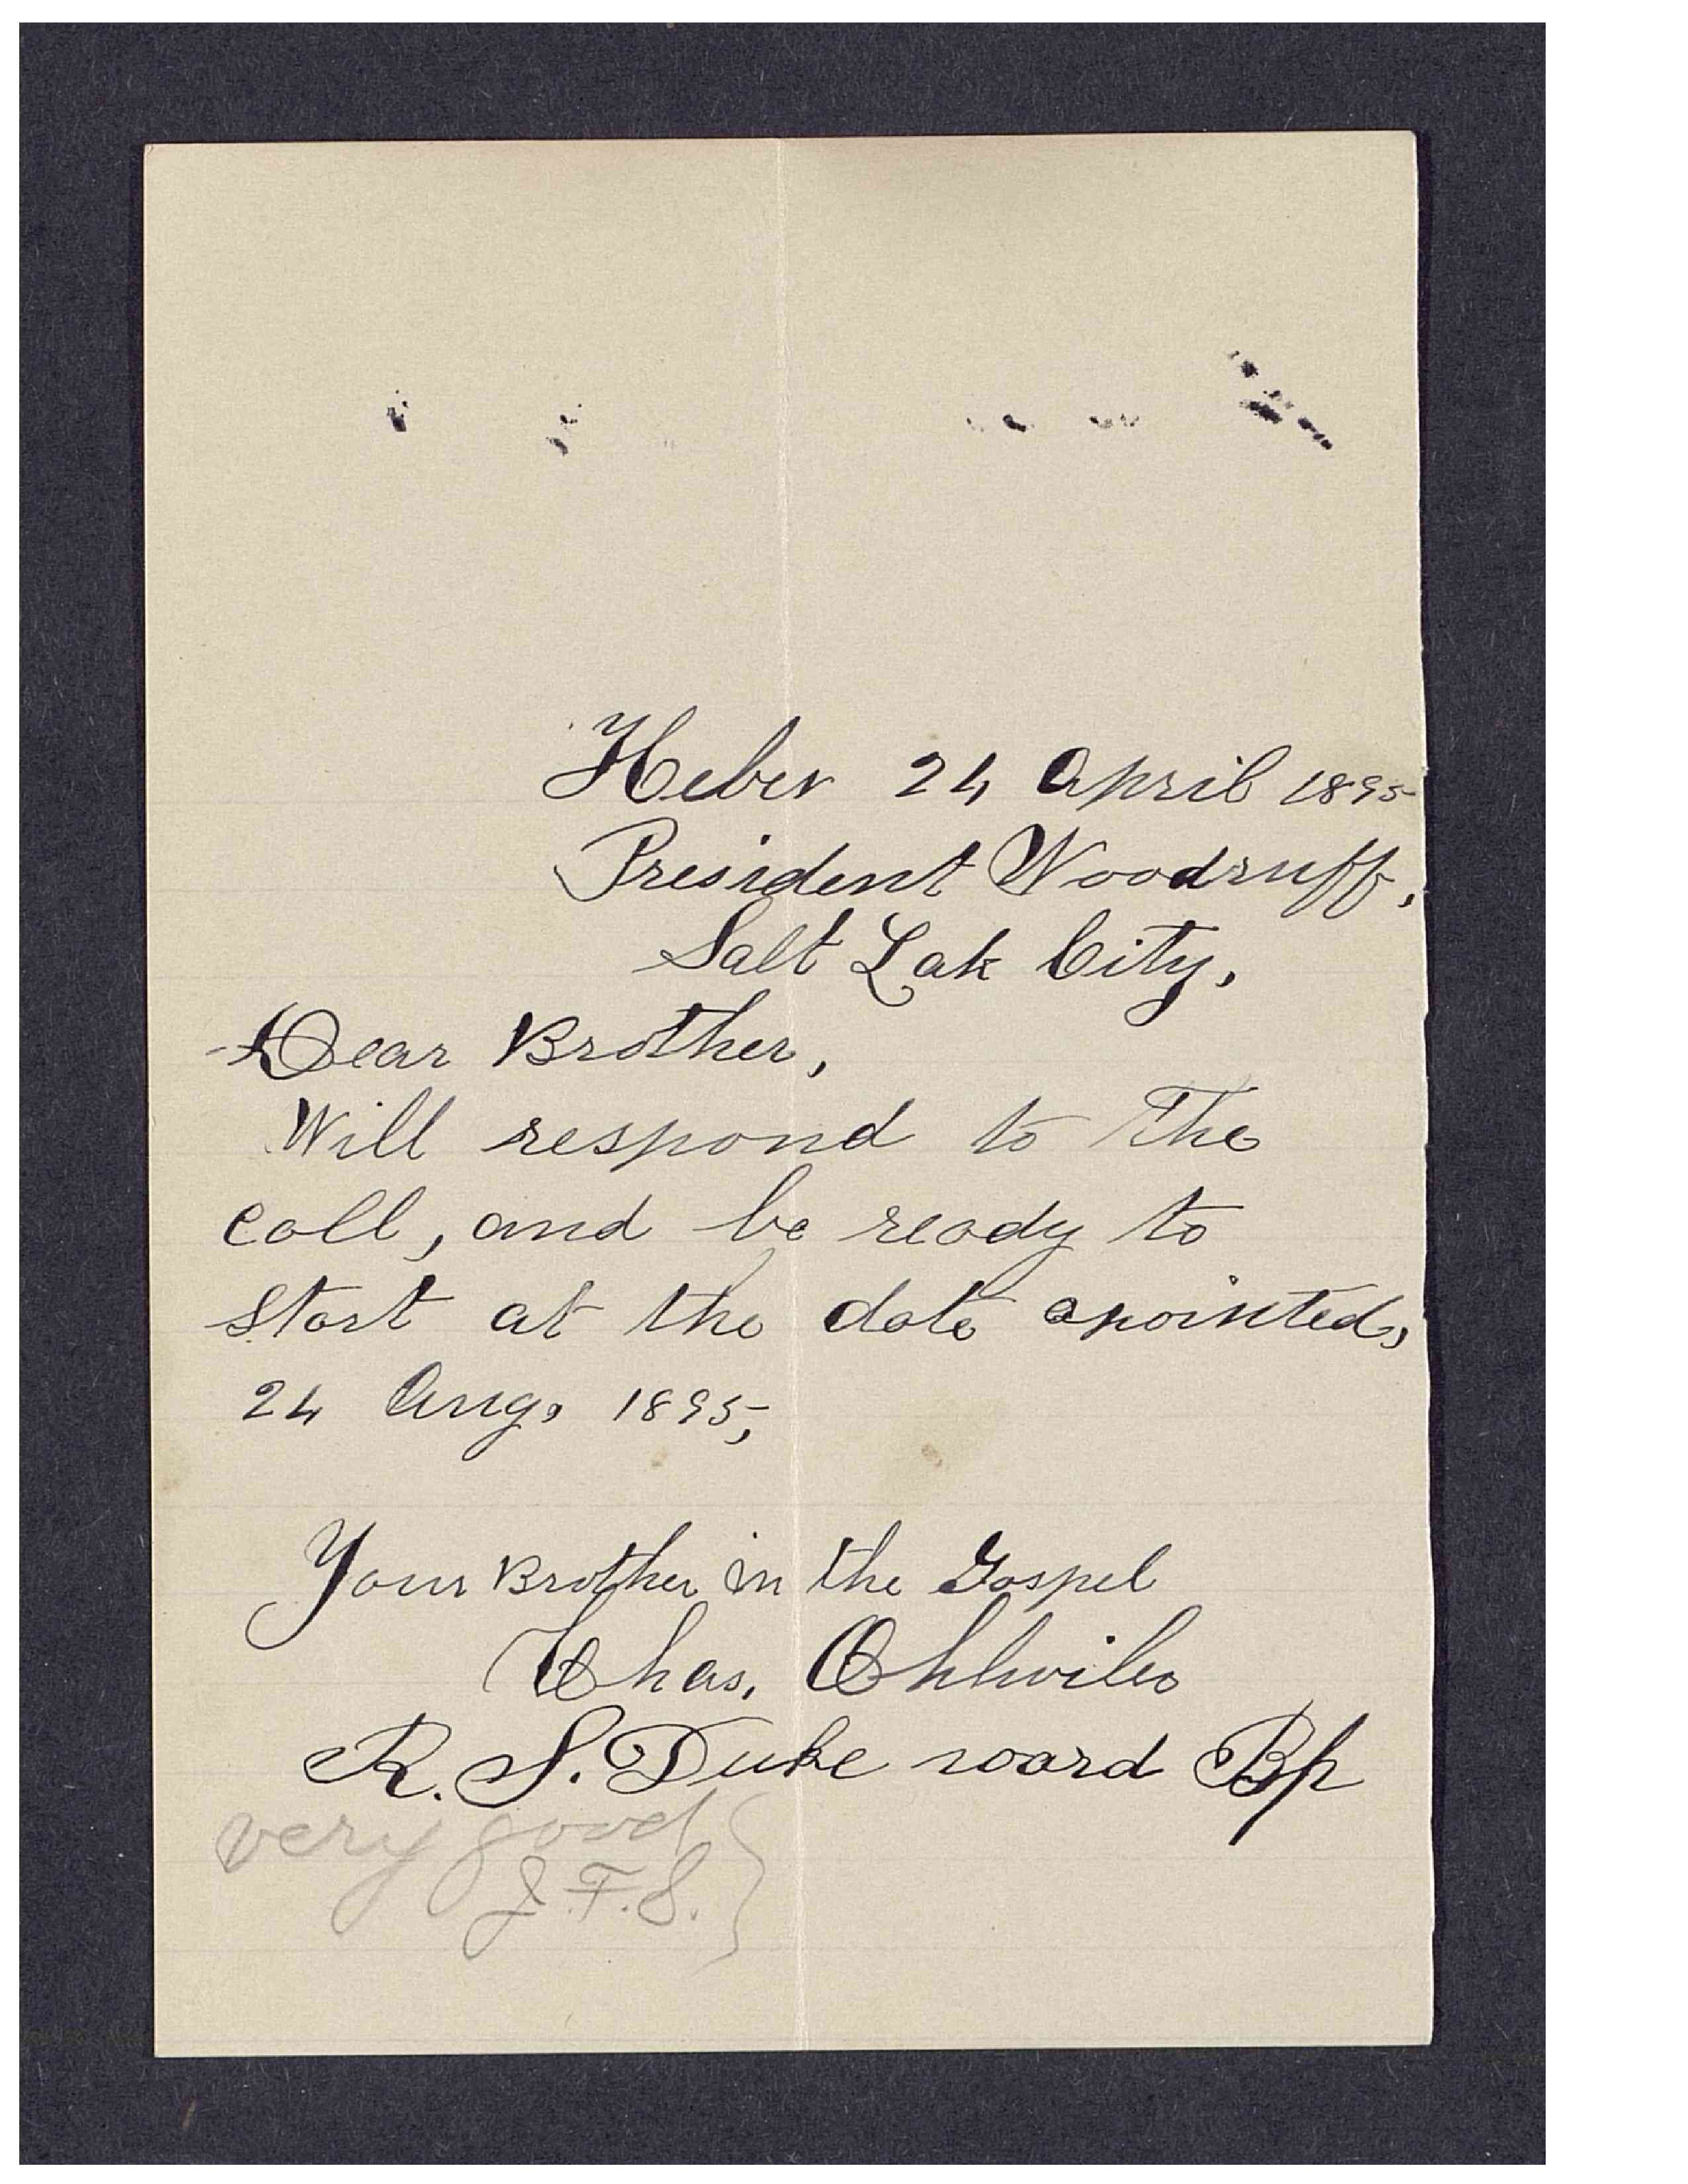 Heber 24 April 1895
President Woodruff,
Salt Lak City,
Dear Brother,
Will respond to The
call, and be ready to
start at the date apointed,
24 Aug. 1895,
Your Brother in the Gospel
Chas, Ohlwiler
R. S. Duke ward Bp
very good }
J. F. S.